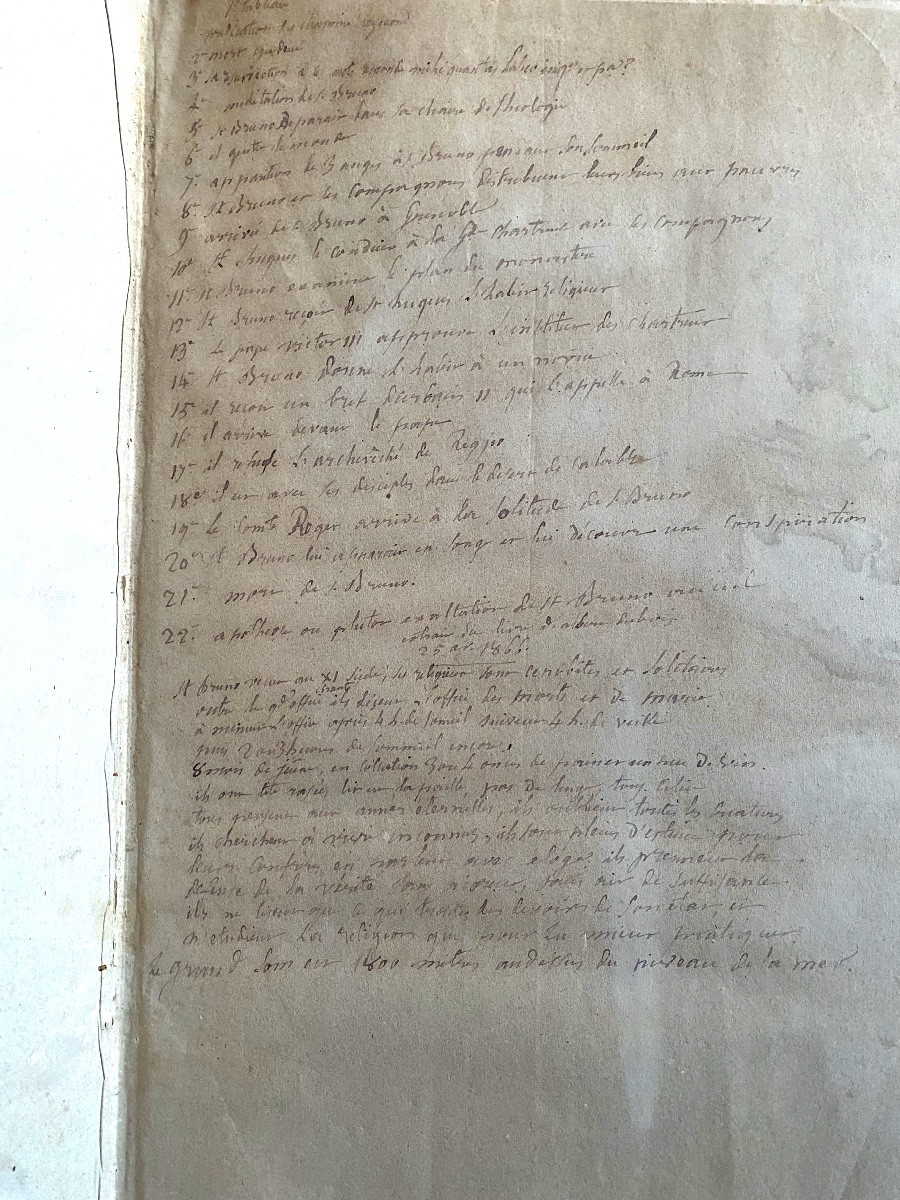 1r tableau
prédication du chanoine Raymond
2e mort
3e résurrection à 2
4e méditation de s. Bruno
5e St Bruno Disparait dans sa chaire de théologie
6e il quitte le monde
7e apparition de 3 anges à s. Bruno pendant son sommeil
8e St Bruno et ses compagnons distribuent leurs biens aux pauvres
9e arrivée de s. Bruno à Grenoble
10e St hugues le conduit à la Gde Chartreuse avec ses compagnons
11e St Bruno examine le plan du monastère
12e St Bruno reçoit de St hugues l'habit religieux
13e Le pape victor III approuve l'institut des Chartreux
14e St Bruno donne l'habit à un novice
15e il reçoit un bref d'urbain II qui l'appelle à Rome
16e il arrive devant le pape
17e il refuse l'archevêché de Reggio
18e il est avec ses disciples dans le désert de calabre
19e Le Comte Roger arrive à la solitude de s. Bruno
20e St Bruno lui apparait en songe et lui découvre une conspiration
21e mort de s. Bruno.
22e apothéose ou plutot exaltation de St Bruno au ciel
extrait du livre d'albert dubois
25 1866.
St Bruno vécut au XI siècle, ses religieux sont cenobites et solitaires
outre le gd office ils disent l'office des morts et de marie
à minuit l'office après 4 h. de someil suivent 4 h. de veille
puis 2 au 3 heures de sommeil encore,
8 mois de jeûne, en collation 3 ou 4 onces de pain et un peu De vin.
ils ont tête rasée lit sur la paille, pas de linge, tous cilice
tous pensent aux années éternelles, ils oublient toutes les créatures
ils cherchent à vivre inconnus, ils sont pleins d'estime pour
leurs confrères en parlent avec éloge, ils prennent la
défense de la vérité sans aigreur, sans air de suffisance
ils ne lisent que ce qui traite des devoirs de son état, et
n'etudient La religion que pour la mieux pratiquer.
Le grand Som est 1800 metres audessus du niveau de la mer.